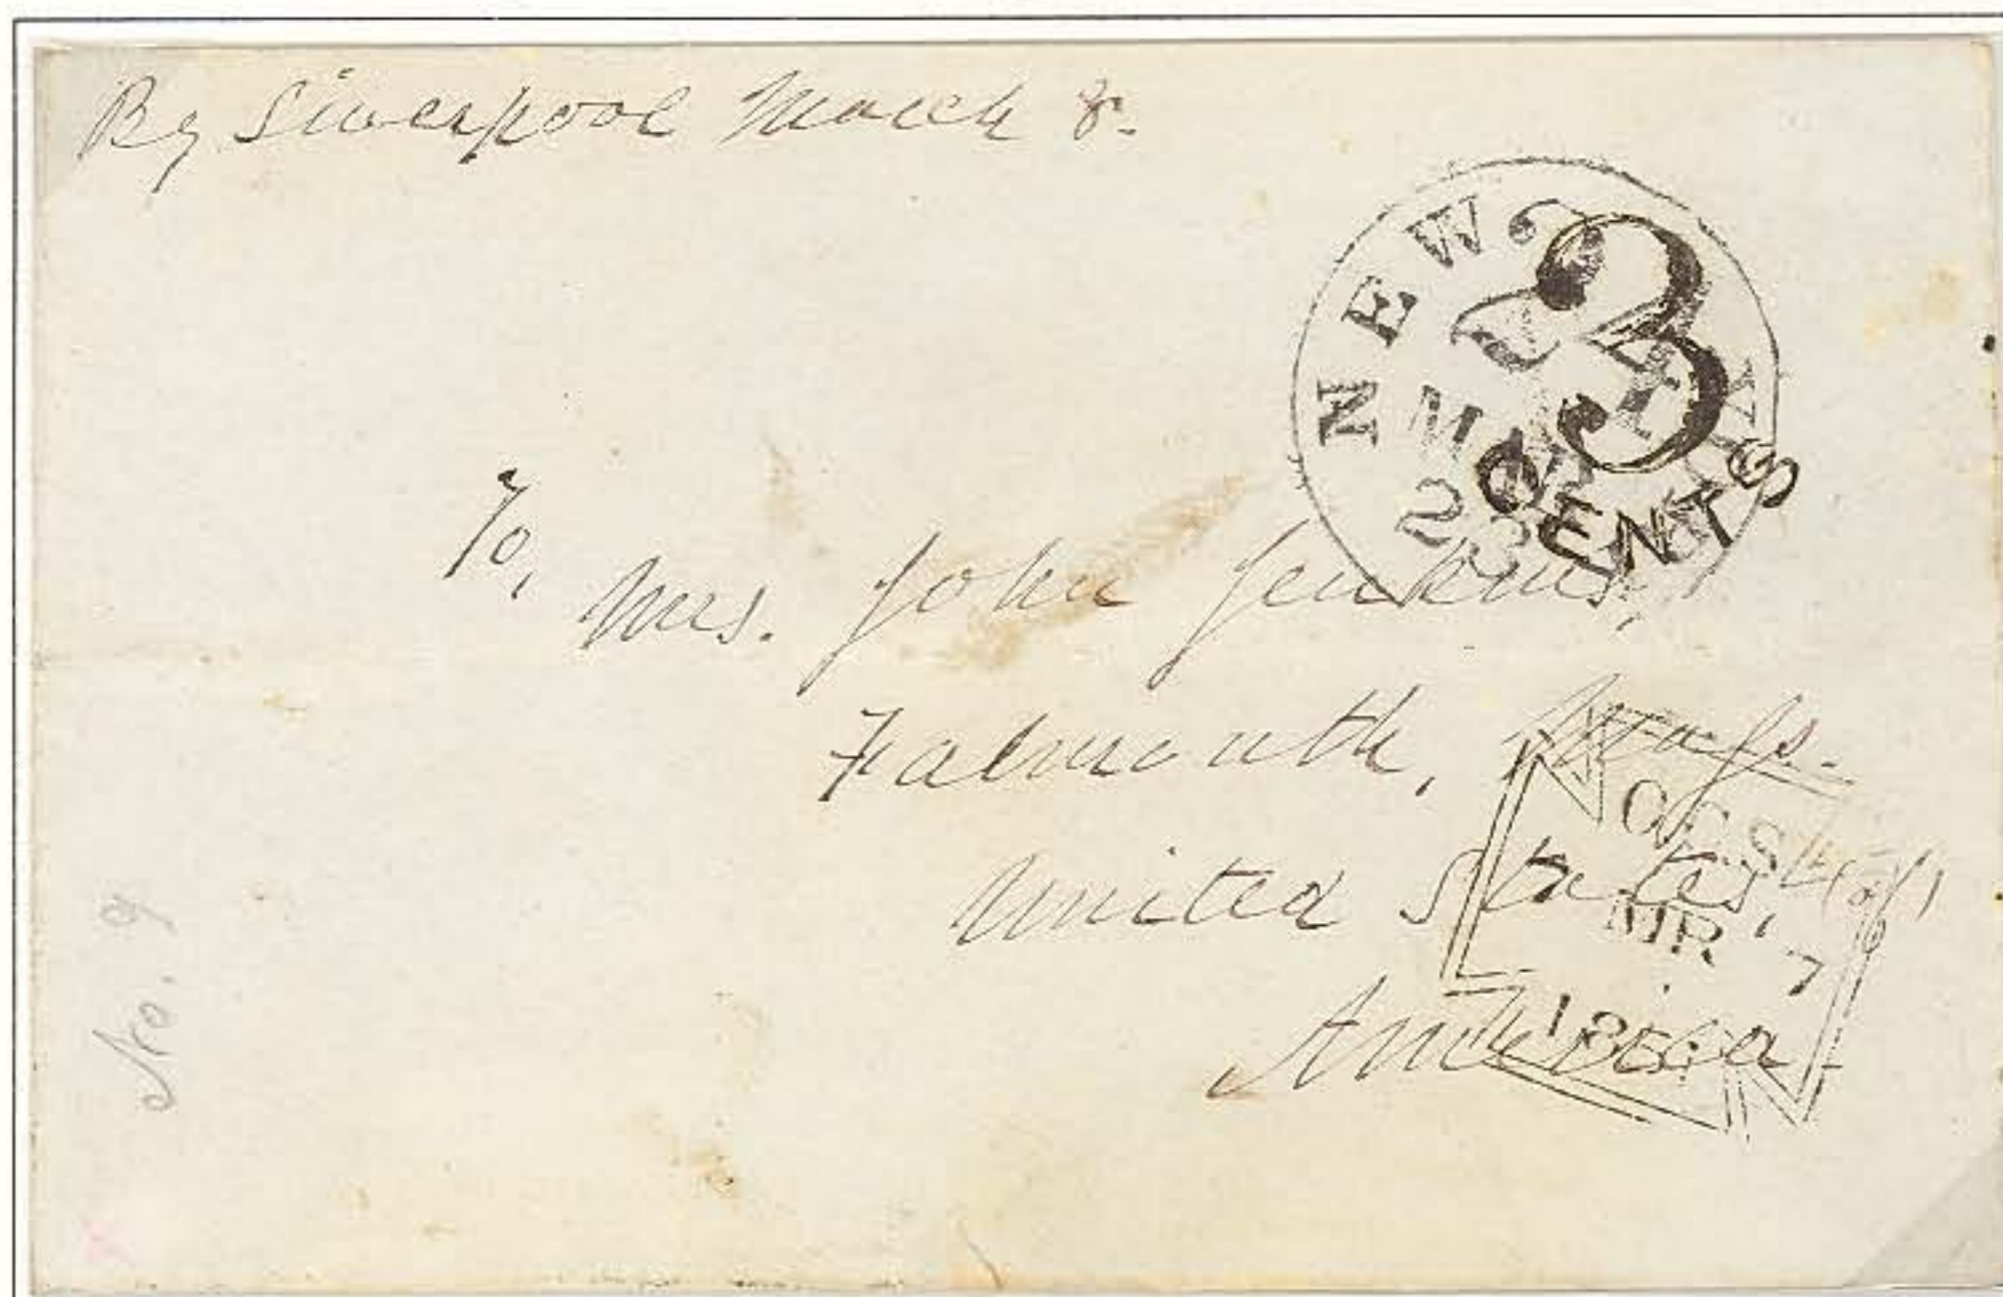 By Liverpool March 8.
NEW
MAR
23
3
CENTS
To,
Mrs. John Jenkins,
Falmouth, Mass.
United States, of
America
MR 7
No. 9